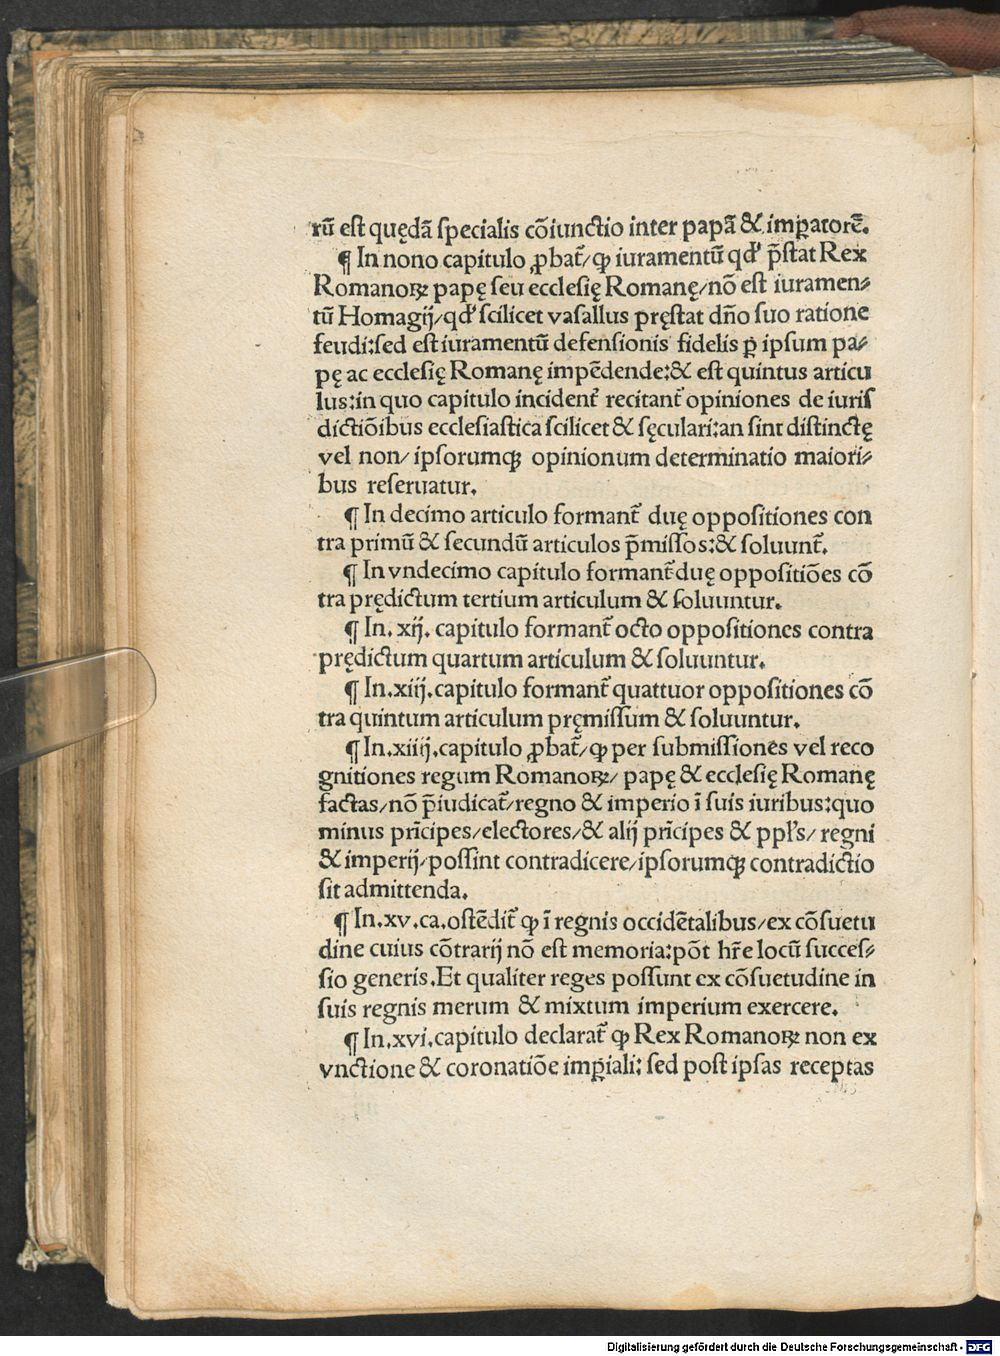 rū est quędā specialis cōiunctio inter papā & imꝑatorē.
¶ In nono capitulo ꝓbat᷑/ ꝙ iuramentū qd' p̄stat Rex
Romanoꝝ papę seu ecclesię Romanę/ nō est iuramen⸗
tū Homagij/ qd' scilicet vasallus pręstat dn̄o suo ratione
feudi: sed est iuramentū defensionis fidelis ꝑ ipsum pa⸗
pę ac ecclesię Romanę impēdende: & est quintus articu
lus: in quo capitulo incident᷑ recitant᷑ opiniones de iuris
dictiōibus ecclesiastica scilicet & sęculari: an sint distinctę
vel non/ ipsorumqꝫ opinionum determinatio maiori⸗
bus reseruatur.
¶ In decimo articulo formant᷑ duę oppositiones con
tra primū & secundū articulos p̄missos: & soluunt᷑.
¶ In vndecimo capitulo formant᷑ duę oppositiōes cō
tra prędictum tertium articulum & soluuntur.
¶ In. xij. capitulo formant᷑ octo oppositiones contra
prędictum quartum articulum & soluuntur.
¶ In. xiij. capitulo formant᷑ quattuor oppositiones cō
tra quintum articulum pręmissum & soluuntur.
¶ In. xiiij. capitulo ꝓbat᷑/ ꝙ per submissiones vel reco
gnitiones regum Romanoꝝ/ papę & ecclesię Romanę
factas/ nō p̄iudicat᷑/ regno & imperio ī suis iuribus: quo
minus prīcipes/ electores/ & alij prīcipes & ppl's/ regni
& imperij/ possint contradicere/ ipsorumqꝫ contradictio
sit admittenda.
¶ In. xv. ca. ostēdit᷑ ꝙ ī regnis occidētalibus/ ex cōsuetu
dine cuius cōtrarij nō est memoria: pōt hr̄e locū succes⸗
sio generis. Et qualiter reges possunt ex cōsuetudine in
suis regnis merum & mixtum imperium exercere.
¶ In. xvi. capitulo declarat᷑ ꝙ Rex Romanoꝝ non ex
vnctione & coronatiōe imꝑiali: sed post ipsas receptas
Digitalisierung gefördert durch die Deutsche Forschungsgemeinschaft - DFG